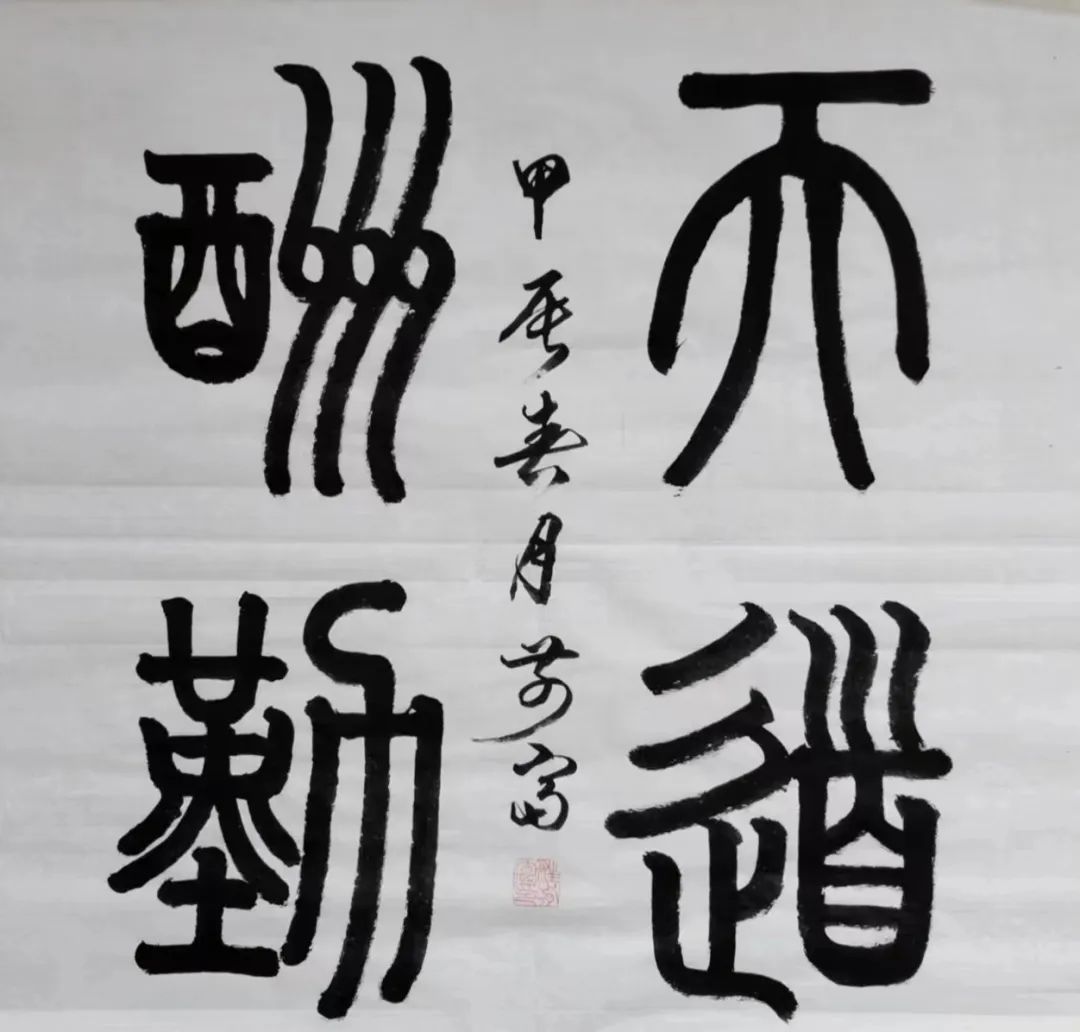 天道
酬勤
甲辰春月